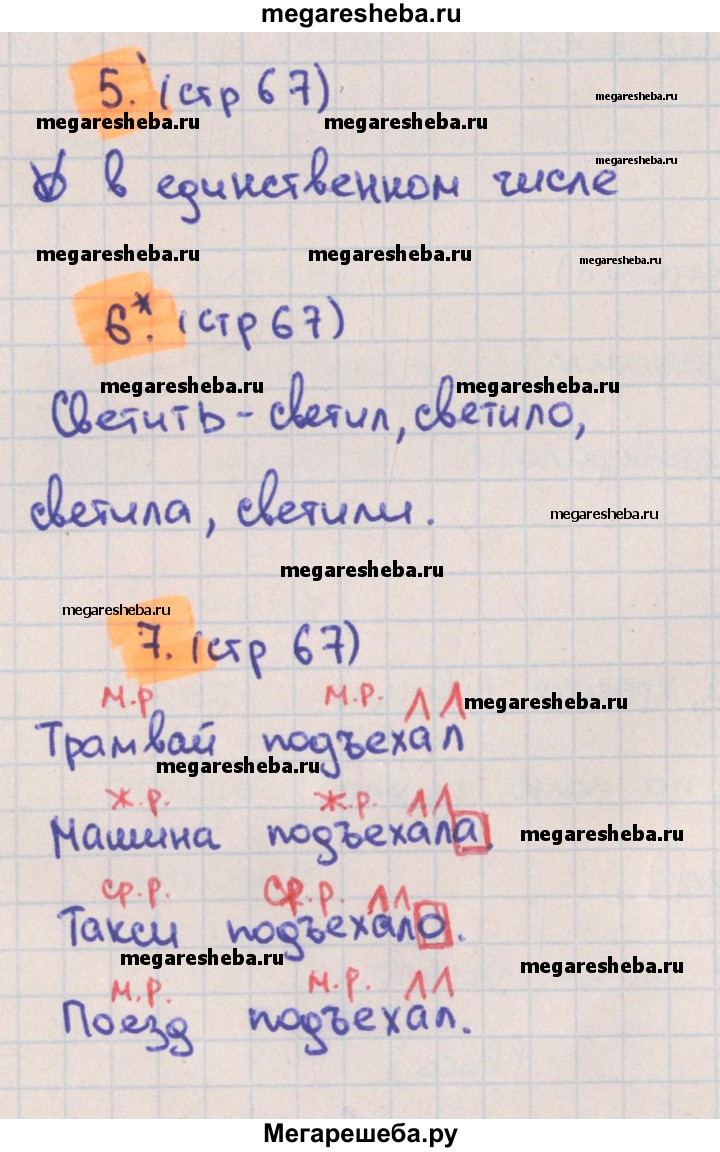 megaresheba.ru
5. (стр 67)
megaresheba.ru
megaresheba.ru megaresheba.ru
megaresheba.ru
в единственном числе
megaresheba.ru megaresheba.ru megaresheba.ru
6*. (стр 67)
megaresheba.ru megaresheba.ru
Светить - светил, светило,
светила, светили.
megaresheba.ru
megaresheba.ru
megaresheba.ru
7. (стр 67)
м.р м.р. ^ ^
megaresheba.ru
Трамвай подъехал
megaresheba.ru
ж.р. ж.р. ^ ^
Машина подъехала.
megaresheba.ru
ср.р. ср.р. ^ ^
Такси подъехало.
megaresheba.ru
megaresheba.ru
м.р. м.р. ^ ^
Поезд подъехал.
Мегарешеба.ру